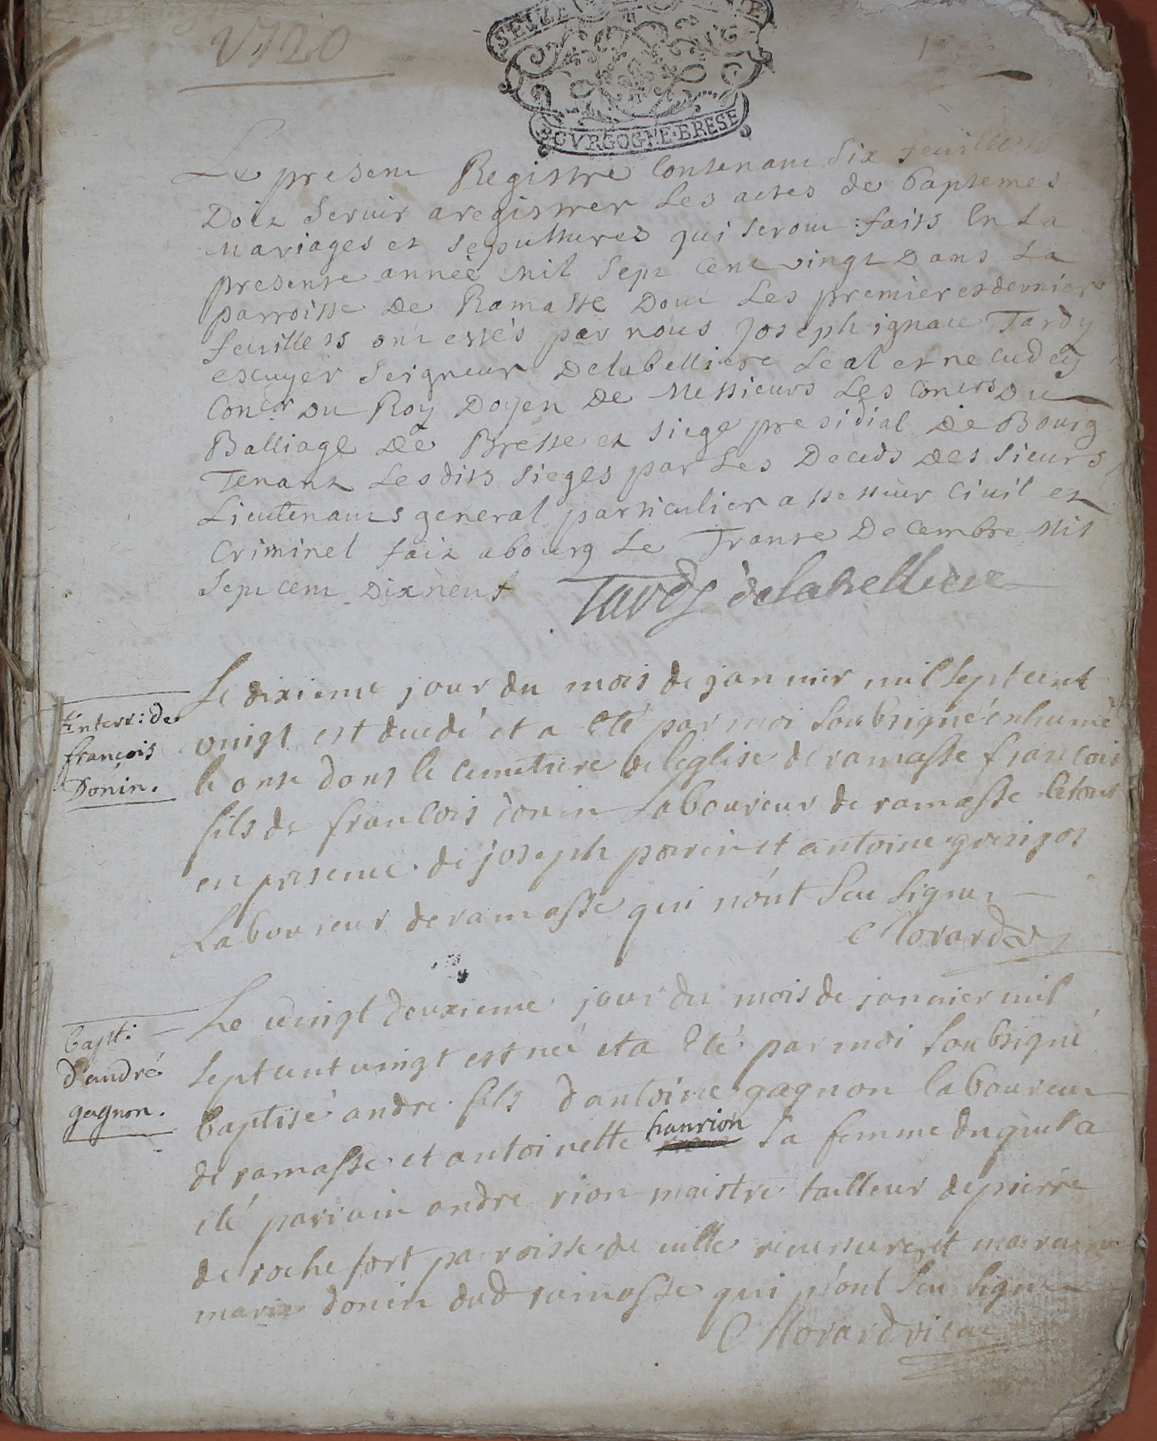 1720
BOVRGOGNE·BRESE
Le present Registre Contenant Six feuillets
Doit Servir a registrer Les actes de baptemes
Mariages et Sepultures qui Seront faits En La
presente année Mil Sept Cent vingt Dans La
parroisse De Ramasse Dont Les premier et dernier
feuillets ont estés par nous Joseph ignace Tardy
escuyer Seigneur Delabelliere
Coner Du Roy Doyen De Messieurs Les Coners Du
Balliage De Bresse et Siege presidial De Bourg
Tenant Lesdits Sieges par Les Deceds Des Sieurs
Lieutenants general particulier assesseur Civil et
Criminel fait abourg Le Trante Decembre Mil
Sept cent Dix neuf Tardy delabelliere
Le dixieme jour du mois de janvier mil Sept cent
vingt est decedé et a Eté par moi Soubsigné enhumé
le onse dans le cemetiere de leglise de ramasse francois
fils de francois donin laboureur de ramasse
en presence de joseph poncin et antoine
Laboureur de ramasse qui n'ont Sceu Signer
Morard
Enterr: de
françois
Donin.
Le vingt deuxieme jour du mois de janvier mil
Sept cent vingt est né et a Eté par moi Soubsigné
baptisé andre fils d'antoine gagnon laboureur
de ramasse et antoinette hanrion Sa femme duquel a
eté parrain andre rion maistre tailleur de pierre
de roche fort parroisse de ville reversure et marraine
marie donin dud ramasse qui n'ont Sceu Signer
Morard vicaire
Bapt:
d'andré
gagnon.